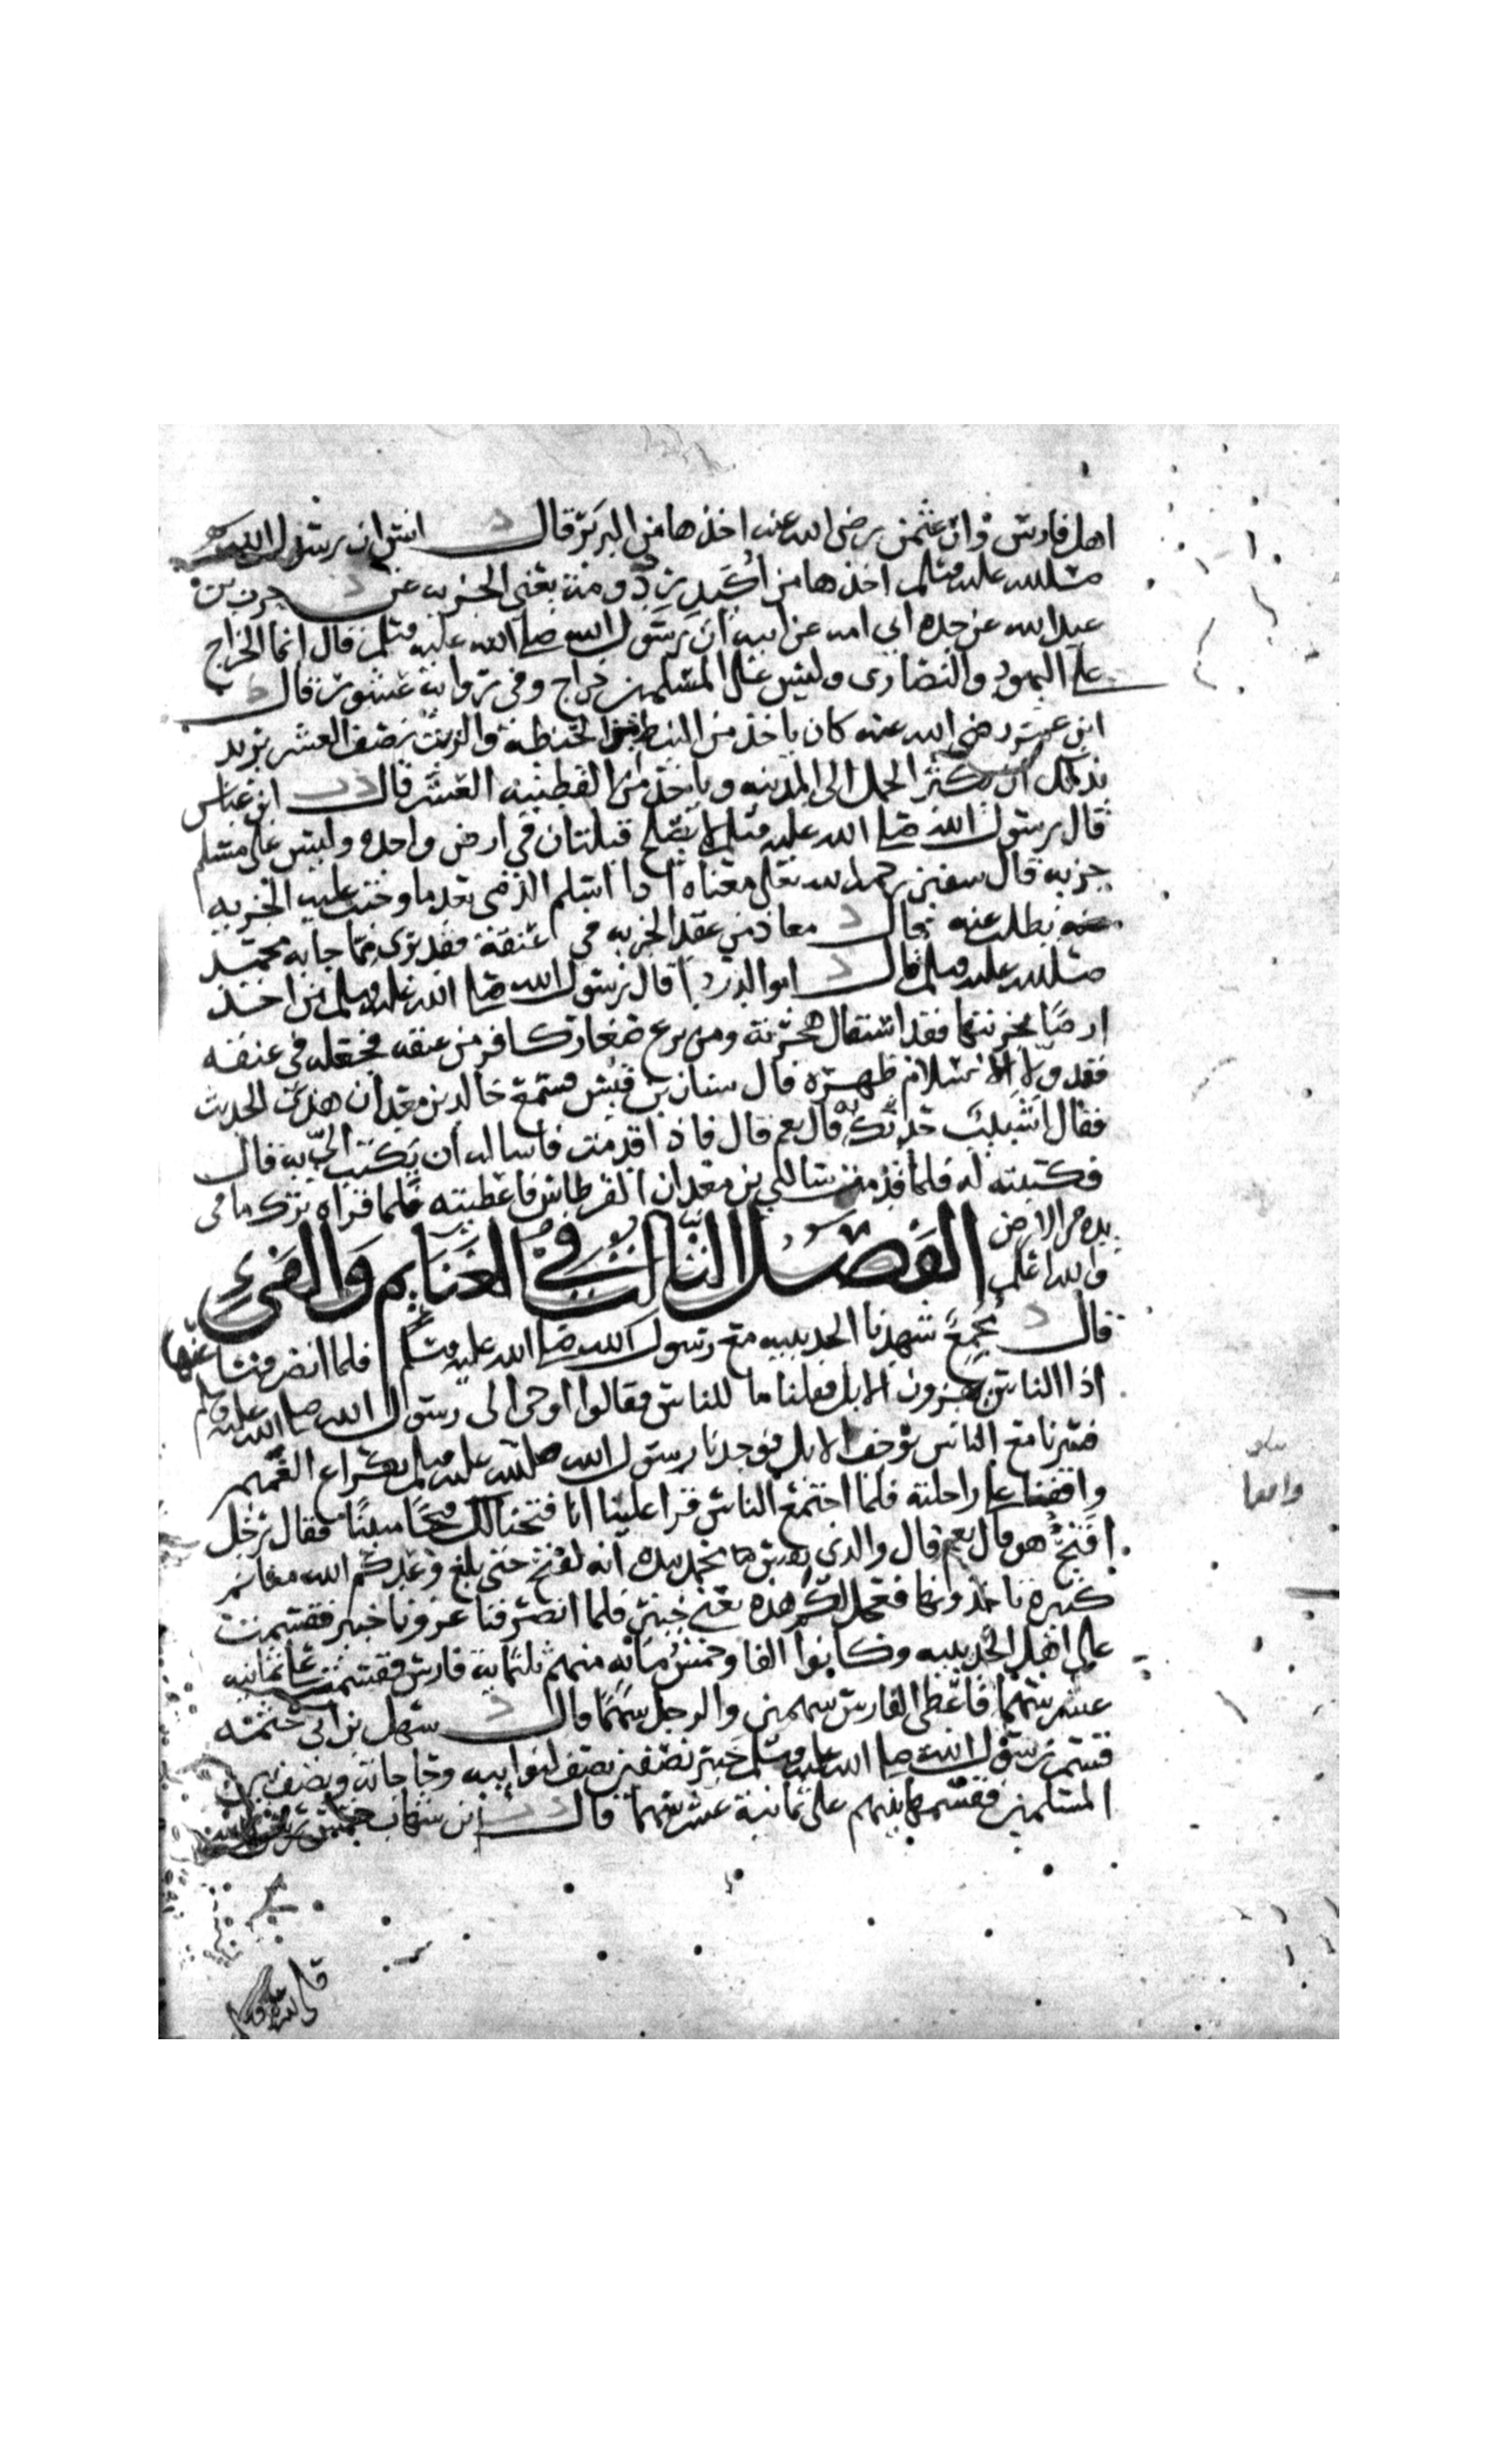 اهل فارس وان عثمن رضي الله عنه اخذها من البربر قال د انس ان رسول الله
صلى الله عليه وسلم اخذها من اكيدر دومة يعني الجزيه عن د حرب بن
عبد الله عن جده ابي امه عن ابيه ان رسول الله صلى الله عليه وسلم قال انما الخراج
على اليهود والنصارى وليس على المسلمين خراج وفي رواية عشور قال ط
ابن عمر رضي الله عنه كان ياخذ من النبط من الحنطه والزيت نصف العشر يريد
بذلك ان يكثر الحمل الى المدينه وياخذ من القطنيه العشر قال د ت ابن عباس
قال رسول الله صلى الله عليه وسلم لا تصلح قبلتان في ارض واحده وليس على مسلم
جزيه قال سفين رحمه الله تعلى معناه اذا اسلم الذمي بعد ما وجبت عليه الجزيه
بطلت عنه قال د معاذ من عقد الجزيه في عنقه فقد برى مما جا به محمد
صلى الله عليه وسلم قال د ابو الدردا قال رسول الله صلى الله عليه وسلم من اخذ
ارضا بجزيتها فقد استقال هجرته ومن نزع صغار كافر من عنقه فجعله في عنقه
فقد ولا الاسلام ظهره قال سنان بن قيس فسمع خالد بن معدان هذا الحديث
فقال اشبيب حدثك قال نعم قال فاذا قدمت فاساله ان يكتب الي به قال
فكتبته له فلما قدمت سالني بن معدان القرطاس فاعطيته فلما قراه ترك ما في
يده من الارض
والله اعلم
الفصل الثالث في الغنايم والفي
قال د مجمع شهدنا الحديبيه مع رسول الله صلى الله عليه وسلم فلما انصرفنا عنها
اذا الناس يهزون الابل فقلنا ما للناس فقالوا اوحي الى رسول الله صلى الله عليه وسلم
فسرنا مع الناس نوجف الابل فوجدنا رسول الله صلى الله عليه وسلم بكراع الغميم
واقفا على راحلته فلما اجتمع الناس قرا علينا انا فتحنا لك فتحا مبينا فقال رجل
افتح هو قال نعم قال والذي نفس محمد بيده انه لفتح حتى بلغ وعدكم الله مغانم
كثيره تاخذونها فعجل لكم هذه يعني خيبر فلما انصرفنا غزونا خيبر فقسمت
على اهل الحديبيه وكانوا الفا وخمس مائه منهم ثلثماية فارس فقسمت على ثمانيه
عشر سهما فاعطى الفارس سهمين والرجل سهما قال د سهل بن ابي حثمه
قسم رسول الله صلى الله عليه وسلم خيبر نصفين نصف لنوايبه وحاجاته ونصف بين
المسلمين فقسمها بينهم على ثمانية عشر سهما قال د ابن شهاب خمس
واقفا